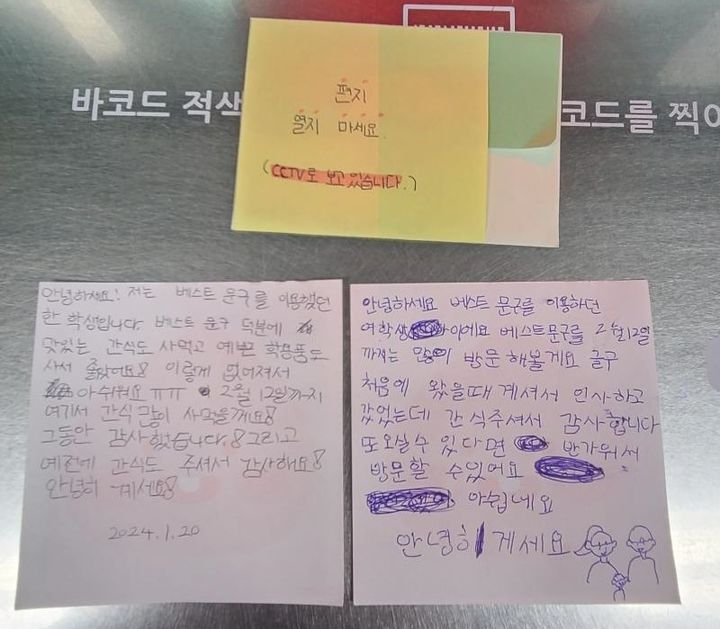 바코드 적색
코드를 찍어
편지
열지 마세요.
(CCTV로 보고있습니다.)
안녕하세요! 저는 베스트 문구를 이용했던
한 학생입니다. 베스트 문구 덕분에
맛있는 간식도 사먹고 예쁜 학용품도
사서 좋았어요! 이렇게 없어져서
아쉬워요 ㅠㅠ 2월 12일까지
여기서 간식 많이 사먹을께요!
그동안 감사했습니다.! 그리고
예전에 간식도 주셔서 감사해요!
안녕히 계세요!
2024.1.20
안녕하세요 베스트 문구를 이용하던
여학생 이에요 베스트문구를 2월12일
까지는 많이 방문 해볼게요 글구
처음에 왔을때 계셔서 인사하고
갔었는데 간식주셔서 감사합니다
또오실수 있다면 반가워서
방문할 수있어요
아쉽네요
안녕히 계세요